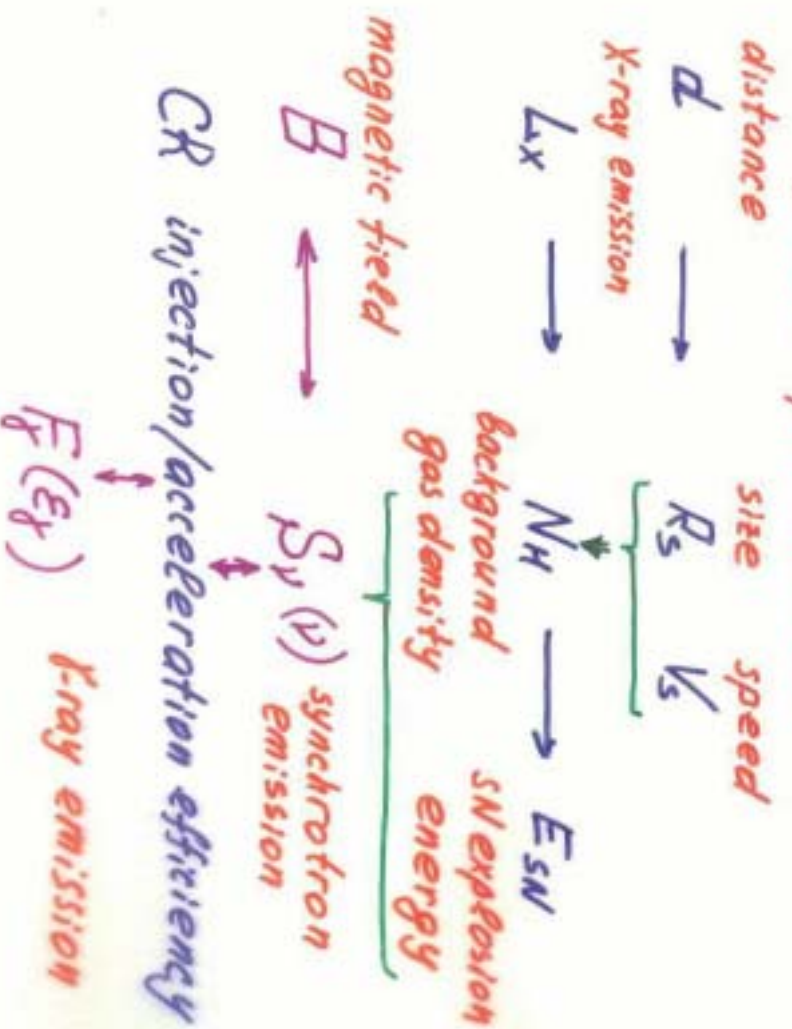 distance size speed
d → Rs Vs
X-ray emission
Lx → NH → ESN
background SN explosion
gas density energy
magnetic field
B ↔ Sν(ν) synchrotron
emission
CR injection/acceleration efficiency
Fγ(εγ) γ-ray emission